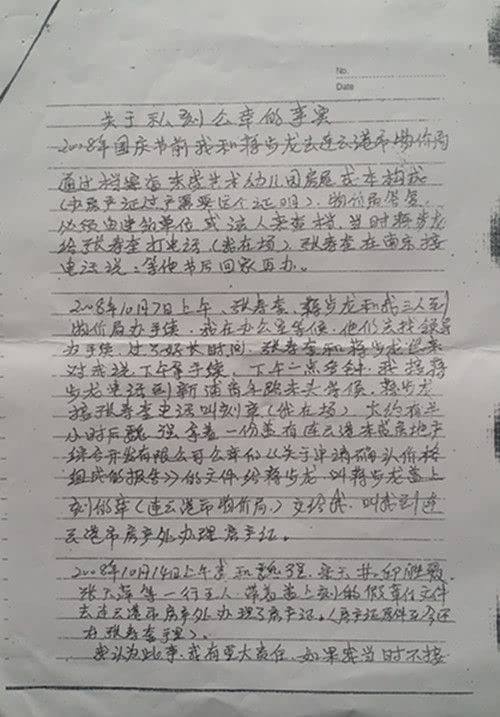 No.
Date
关于私刻公章的事实
2008年国庆节前我和蒋步龙去连云港市物价局
通过档案查 艺术幼儿园房屋成本构成
(办房产证过户需要这个证明)。物价局答复,
必须由建筑单位或法人来查档,当时蒋步龙
给张寿查打电话(我在场)张寿查在南京接
电话说:等他节后回家再办。
2008年10月7日上午、张寿查、蒋步龙和我三人到
物价局办手续,我在办公室等候,他们去找领导
办手续,过了好长时间,张寿查和蒋步龙出来
对我说,下午拿手续,下午二点多钟,我接蒋
步龙电话到新浦青年路东头等候,蒋步龙
接张寿查电话叫刻章(我在场)大约有半
小时后魏强拿着一份盖有连云港 房地产
综合开发有限公司公章的《关于申请确认价格
组成的报告》的文件给蒋步龙,叫蒋步龙盖上
刻的章(连云港市物价局,)交给我,叫我到连
云港市房产处办理房产证。
2008年10月14日上午 和魏强、
张 等一行五人,带着盖上刻的假章文件
去连云港市房产处办理了房产证。(房产证原件至今还
在张寿查手里)。
我认为此事,我有重大责任,如果 当时不接